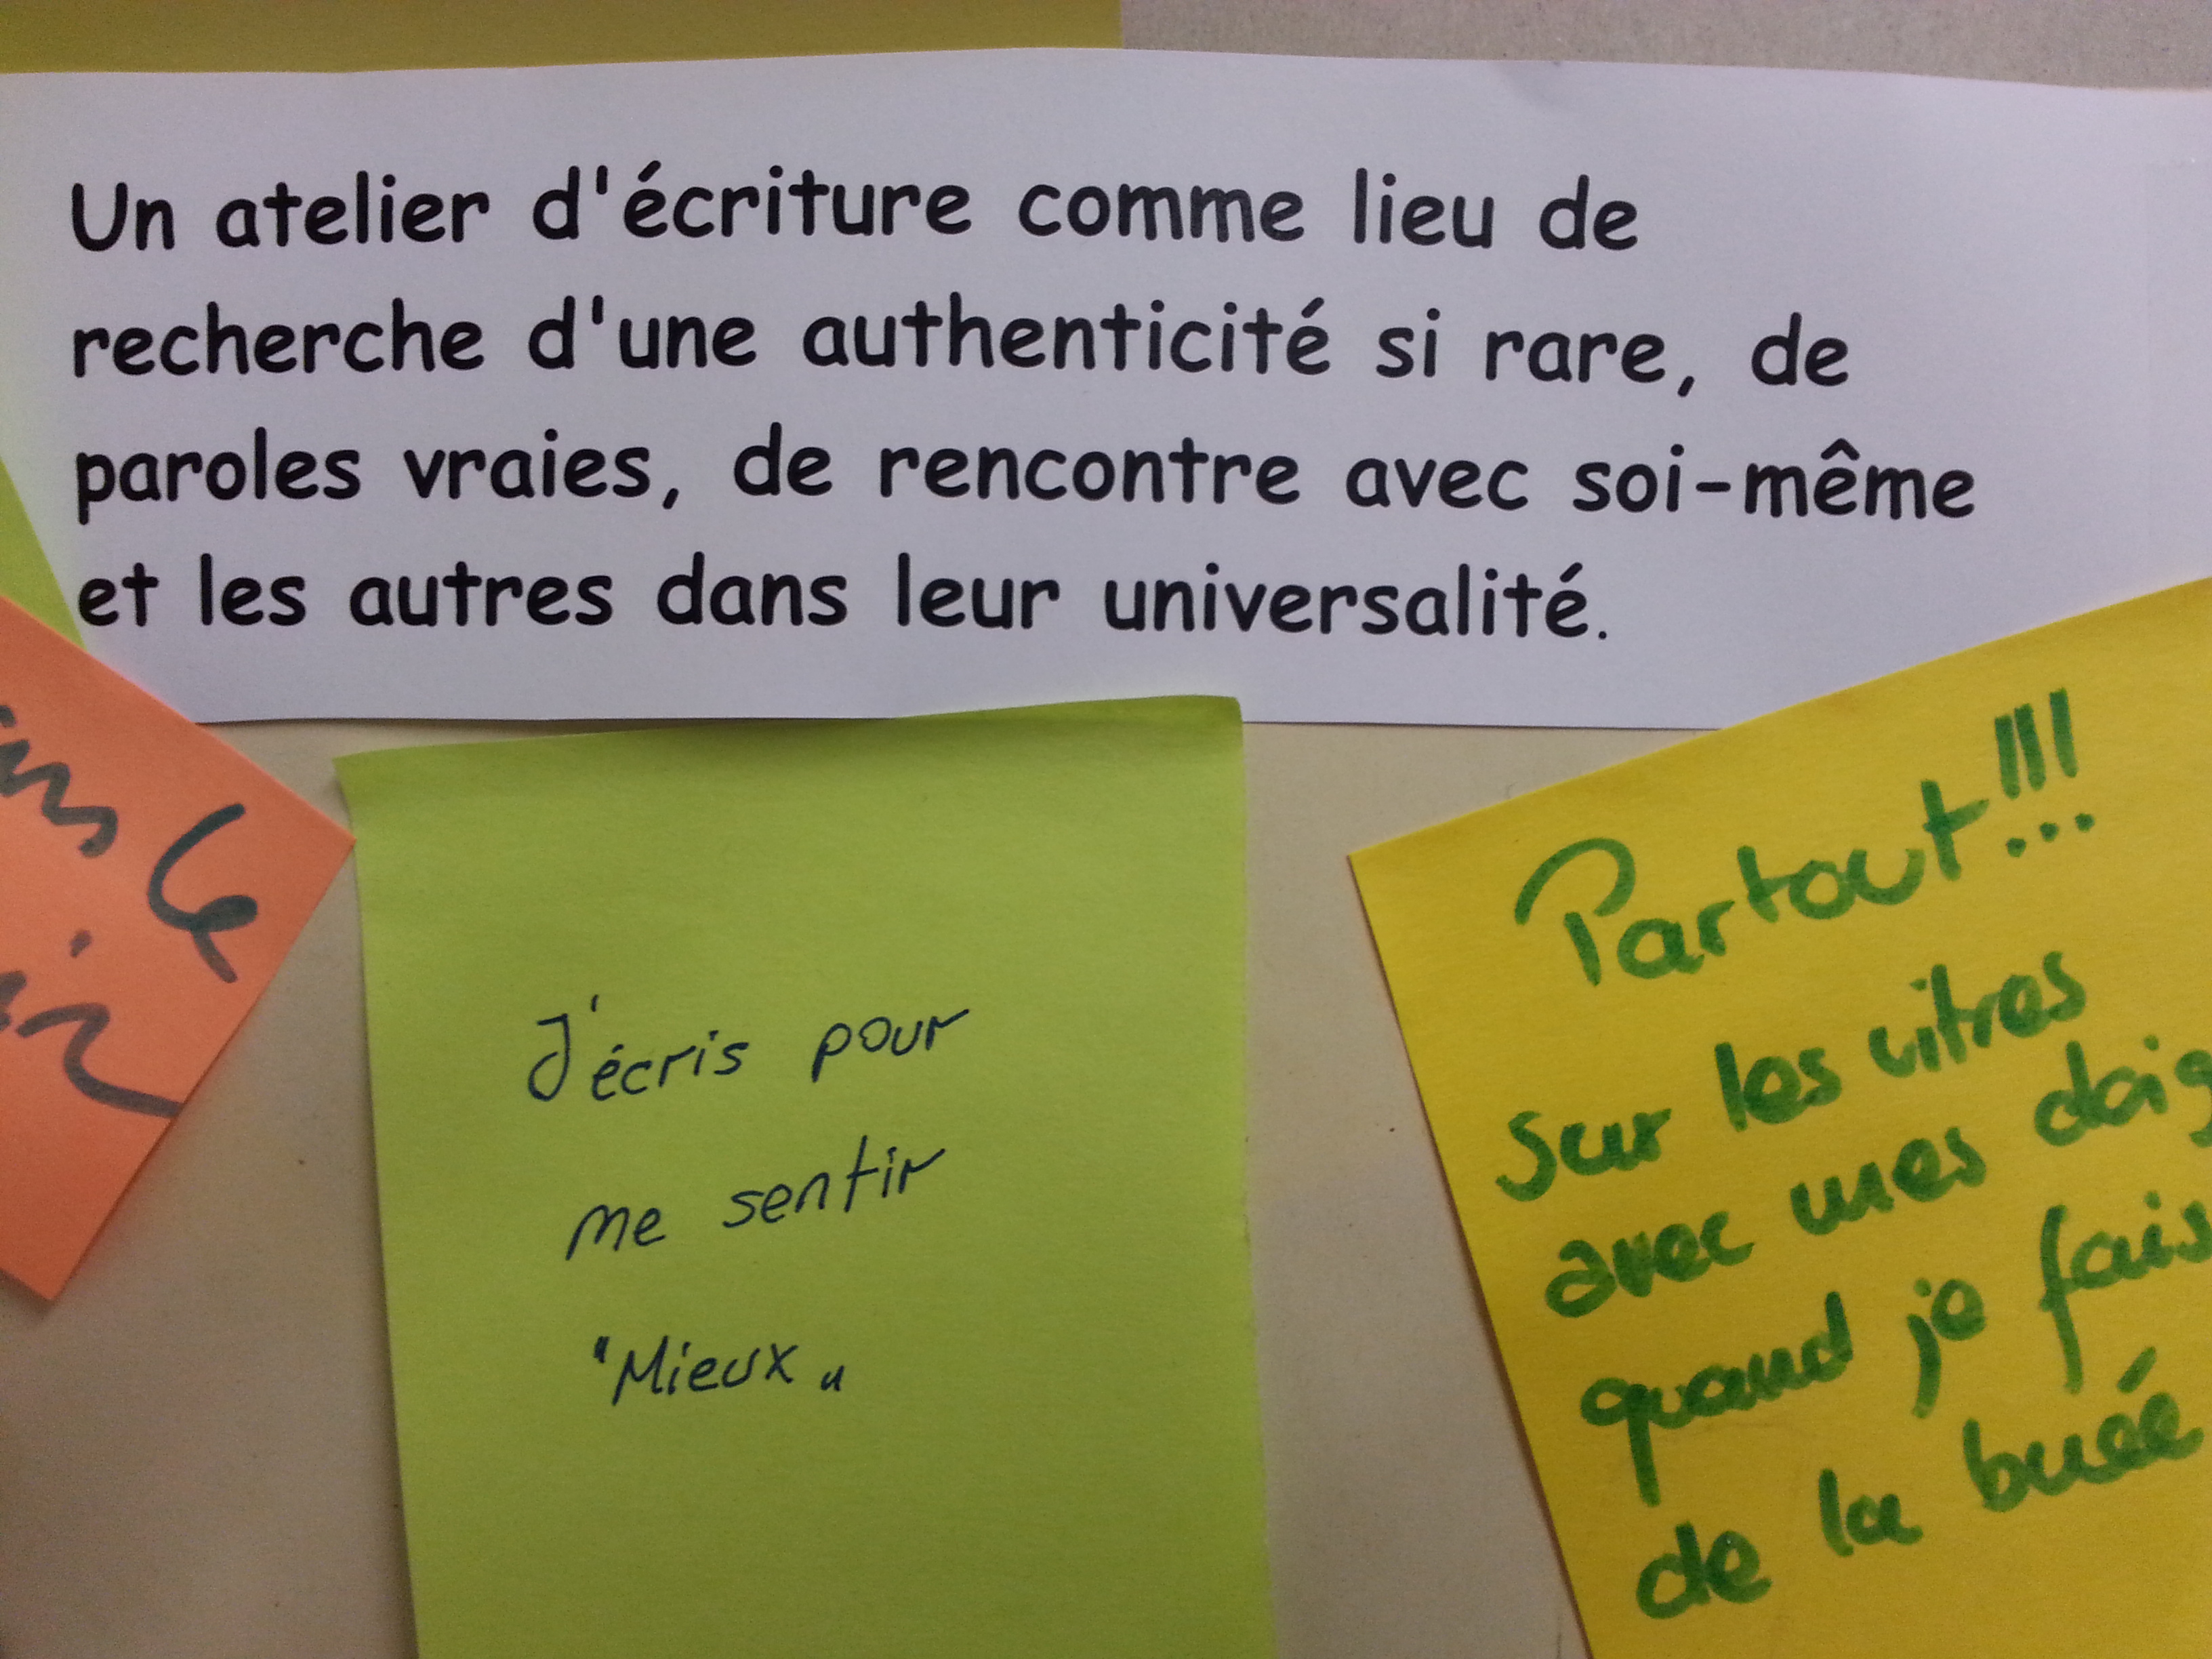 Un atelier d'écriture comme lieu de
recherche d'une authenticité si rare, de
paroles vraies, de rencontre avec soi-même
et les autres dans leur universalité.
le
J'écris pour
me sentir
"Mieux"
Partout!!!
sur les vitres
avec mes doig
quand je fais
de la buée